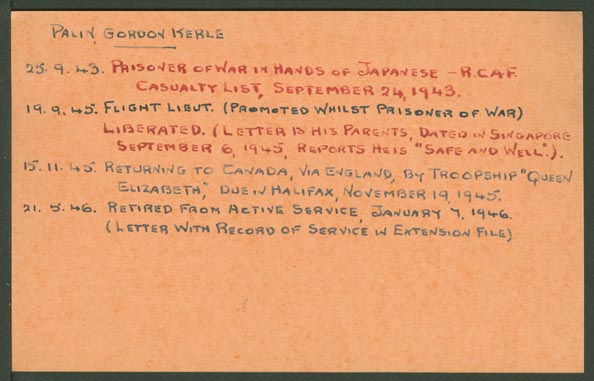 PALIN, GORDON KERLE
25.9.43. PRISONER OF WAR IN HANDS OF JAPANESE – R.C.A.F.
CASUALTY LIST, SEPTEMBER 24, 1943.
19.9.45. FLIGHT LIEUT. (PROMOTED WHILST PRISONER OF WAR)
LIBERATED. (LETTER TO HIS PARENTS, DATED IN SINGAPORE
SEPTEMBER 6, 1945, REPORTS HE IS "SAFE AND WELL").
15.11.45. RETURNING TO CANADA, VIA ENGLAND, BY TROOPSHIP "QUEEN
ELIZABETH," DUE IN HALIFAX, NOVEMBER 19, 1945.
21.5.46. RETIRED FROM ACTIVE SERVICE, JANUARY 7, 1946.
(LETTER WITH RECORD OF SERVICE IN EXTENSION FILE)